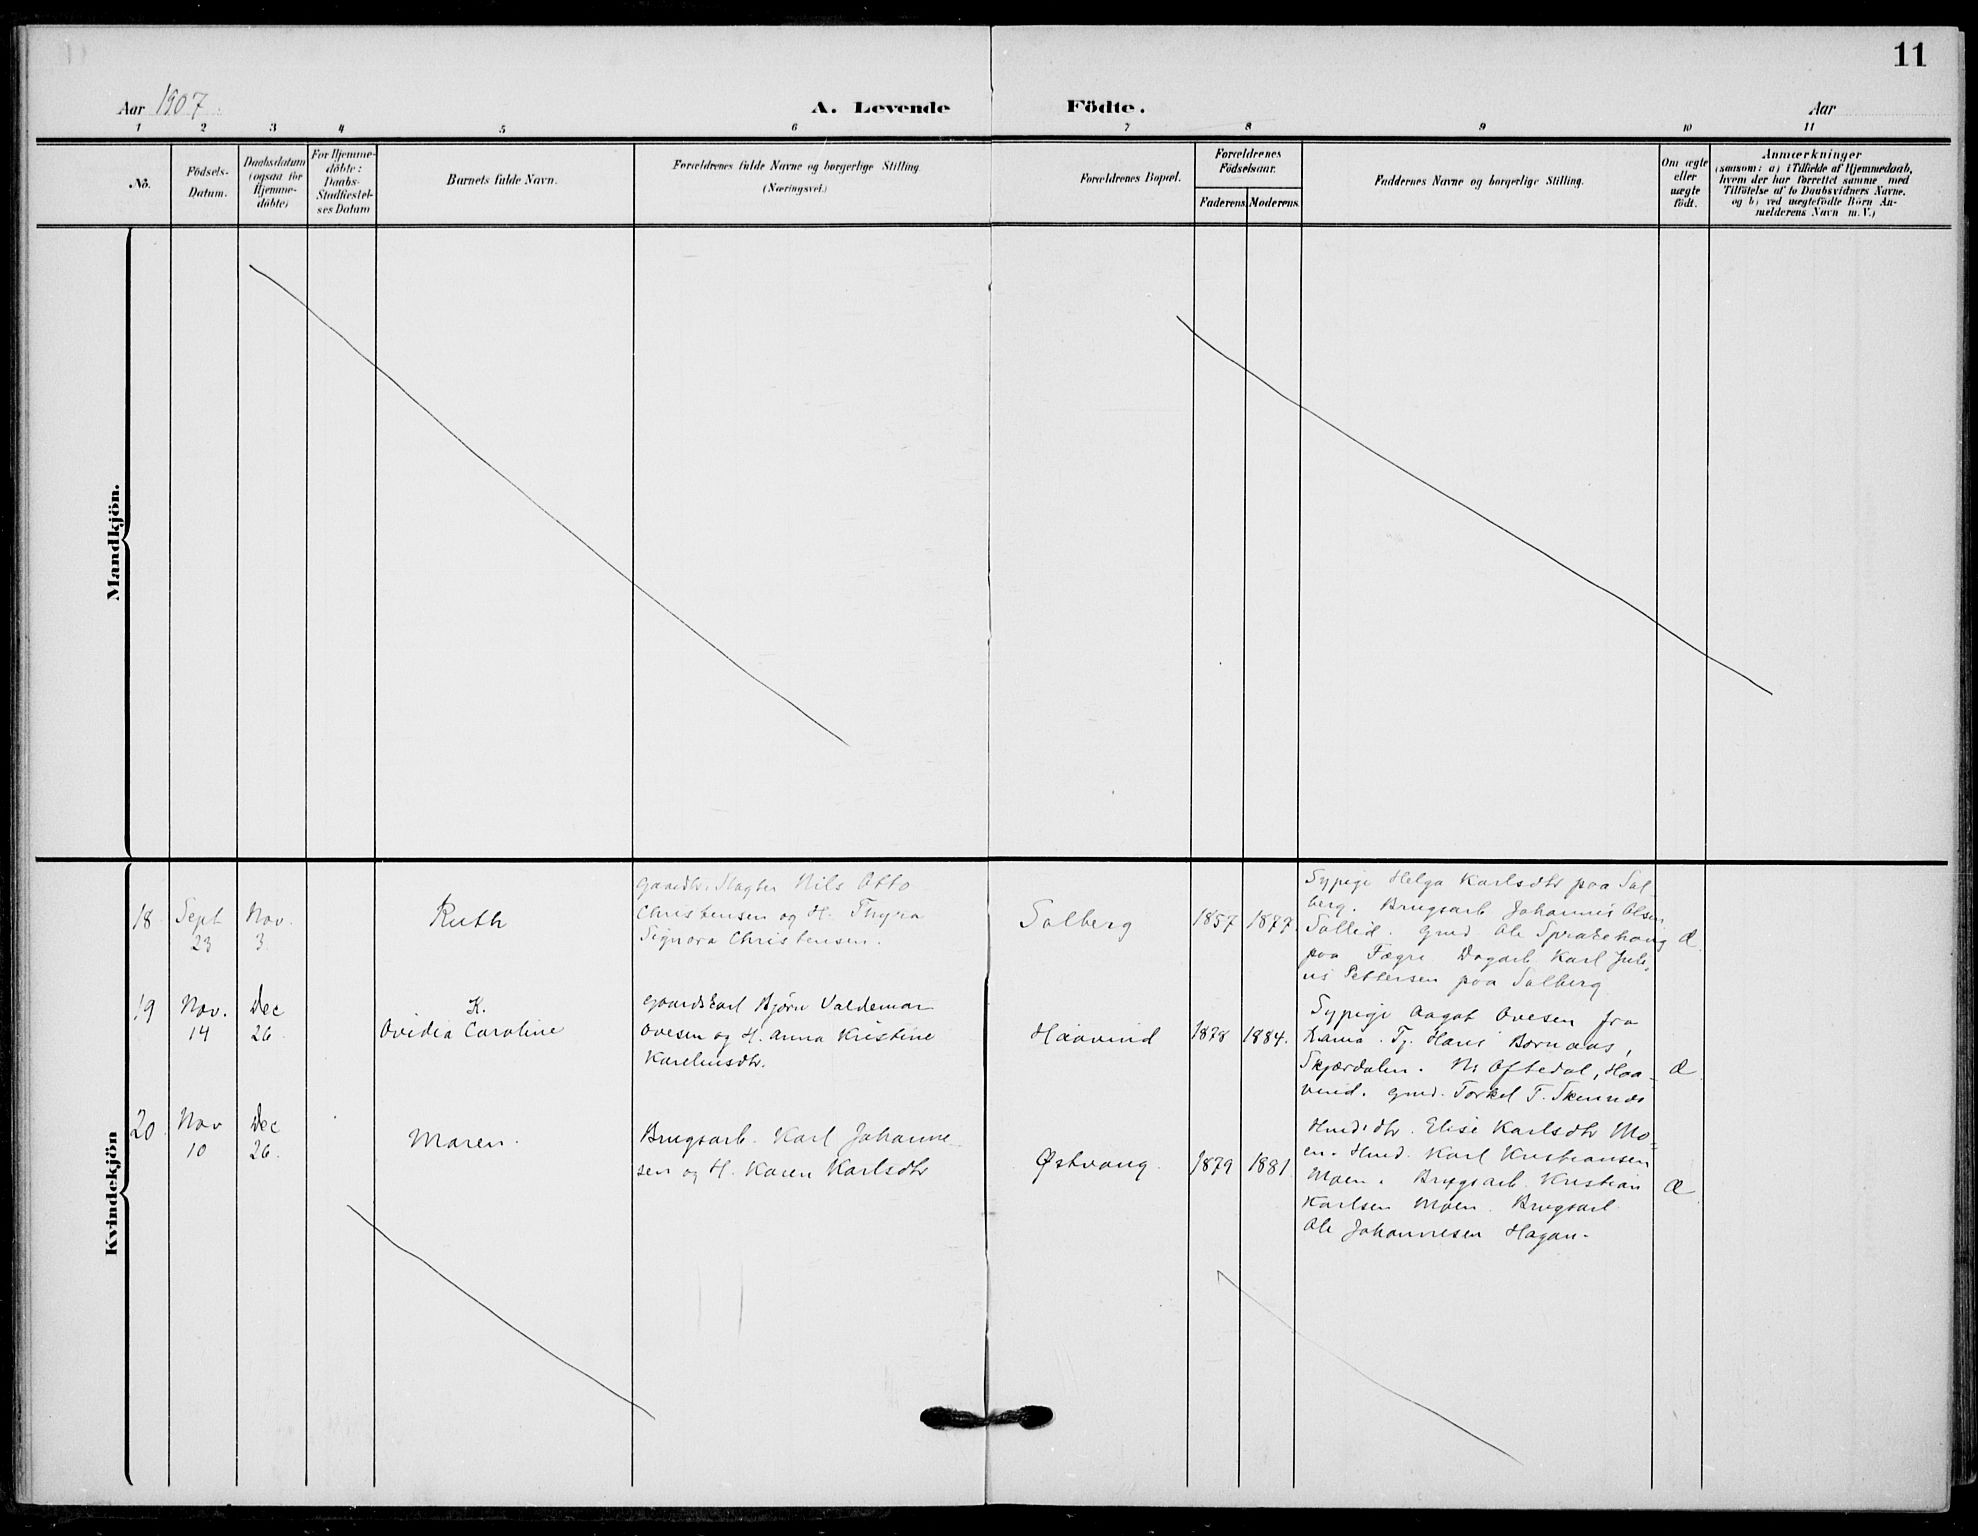 11
Aar 1907
A. Levende Födte.
Aar
1 2 3 4 5 6 7 8 9 10 11
No.
Födsels-
Datum.
Daabsdatum
(ogsaa for
Hjemme-
döbte)
For Hjemme-
döbte:
Daabs-
Stadfæstel-
ses Datum
Barnets fulde Navn.
Forældrenes fulde Navne og borgerlige Stilling
(Næringsvei.)
Forældrenes Bopæl.
Forældrenes
Födselsaar.
Faderens. Moderens.
Faddernes Navne og borgerlige Stilling.
Om ægte
eller
uægte
födt.
Anmærkninger
(saasom: a) i Tilfælde af Hjemmedaab,
hvem der har forrettet samme med
Tilföielse af to Daabsvidners Navne,
og b) ved uægtefödte Börn An-
melderens Navn m. V.)
Mandkjön.
Kvindekjön
18
Sept
23
Nov.
3
Ruth
Gaardbr. Slagter Nils Otto
Christensen og H. Thyra
Signora Christensen.
Solberg
1857
1877.
Sypige Helga Karlsdtr paa Sol-
berg. Brugsarb Johannes Olsen
Sollid. Gmd. Ole
paa Fægri. Dagarb. Karl Juli-
us Pettersen paa Solberg
Æ
19
Nov.
14
Dec
26
K.
Ovidia Caroline
Gaardskarl Bjørn Valdemar
Ovesen og H. Anna Kristine
Karelinsdtr.
Haavind
1878
1884.
Sypige Aagot Ovesen fra
Tj. Hans
Skjærdalen. M. Oftedal, Haa-
vind. Gmd. Torkel T.
Æ
20
Nov
10
Dec
26.
Maren.
Brugsarb. Karl Johanne-
sen og H. Karen Karlsdtr
Østvang.
1879
1881
Hmd.dtr. Elise Karlsdtr Mo-
en. Hmd. Karl Kristiansen
Moen. Brugsarb. Kristian
Karlsen Moen. Brugsarb.
Ole Johannesen Hagan.
Æ